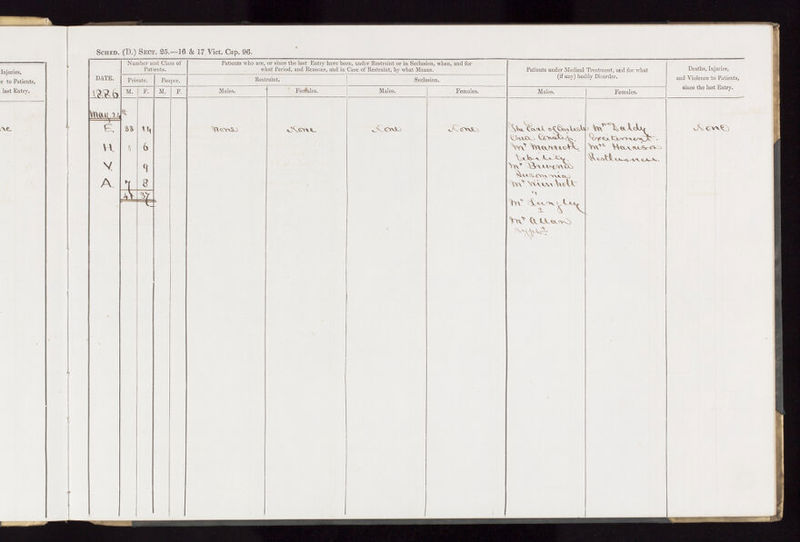 Injuries,
e to Patients,
last Entry.
SCHED. (D.) SECT. 25.—16 & 17 Vict. Cap. 96.
DATE.
Number and Class of
Patients.
Private.
Pauper.
M. F. M. F.
Patients who are, or since the last Entry have been, under Restraint or in Seclusion, when, and for
what Period, and Reasons, and in Case of Restraint, by what Means.
Restraint.
Seclusion.
Males. Females. Males. Females.
Patients under Medical Treatment, and for what
(if any) bodily Disorder.
Males. Females.
Deaths, Injuries,
and Violence to Patients,
since the last Entry.
1886
May
E. 33 14 None None None None The Earl of Mrs None
Excitement.
H 1 6 Mr Marriott Mrs Harrison
Debility Restlessness.
V 9 Mr
Insomnia
A 7 8 Mr
41 37 "
Mr Langley
"
Mr Allan